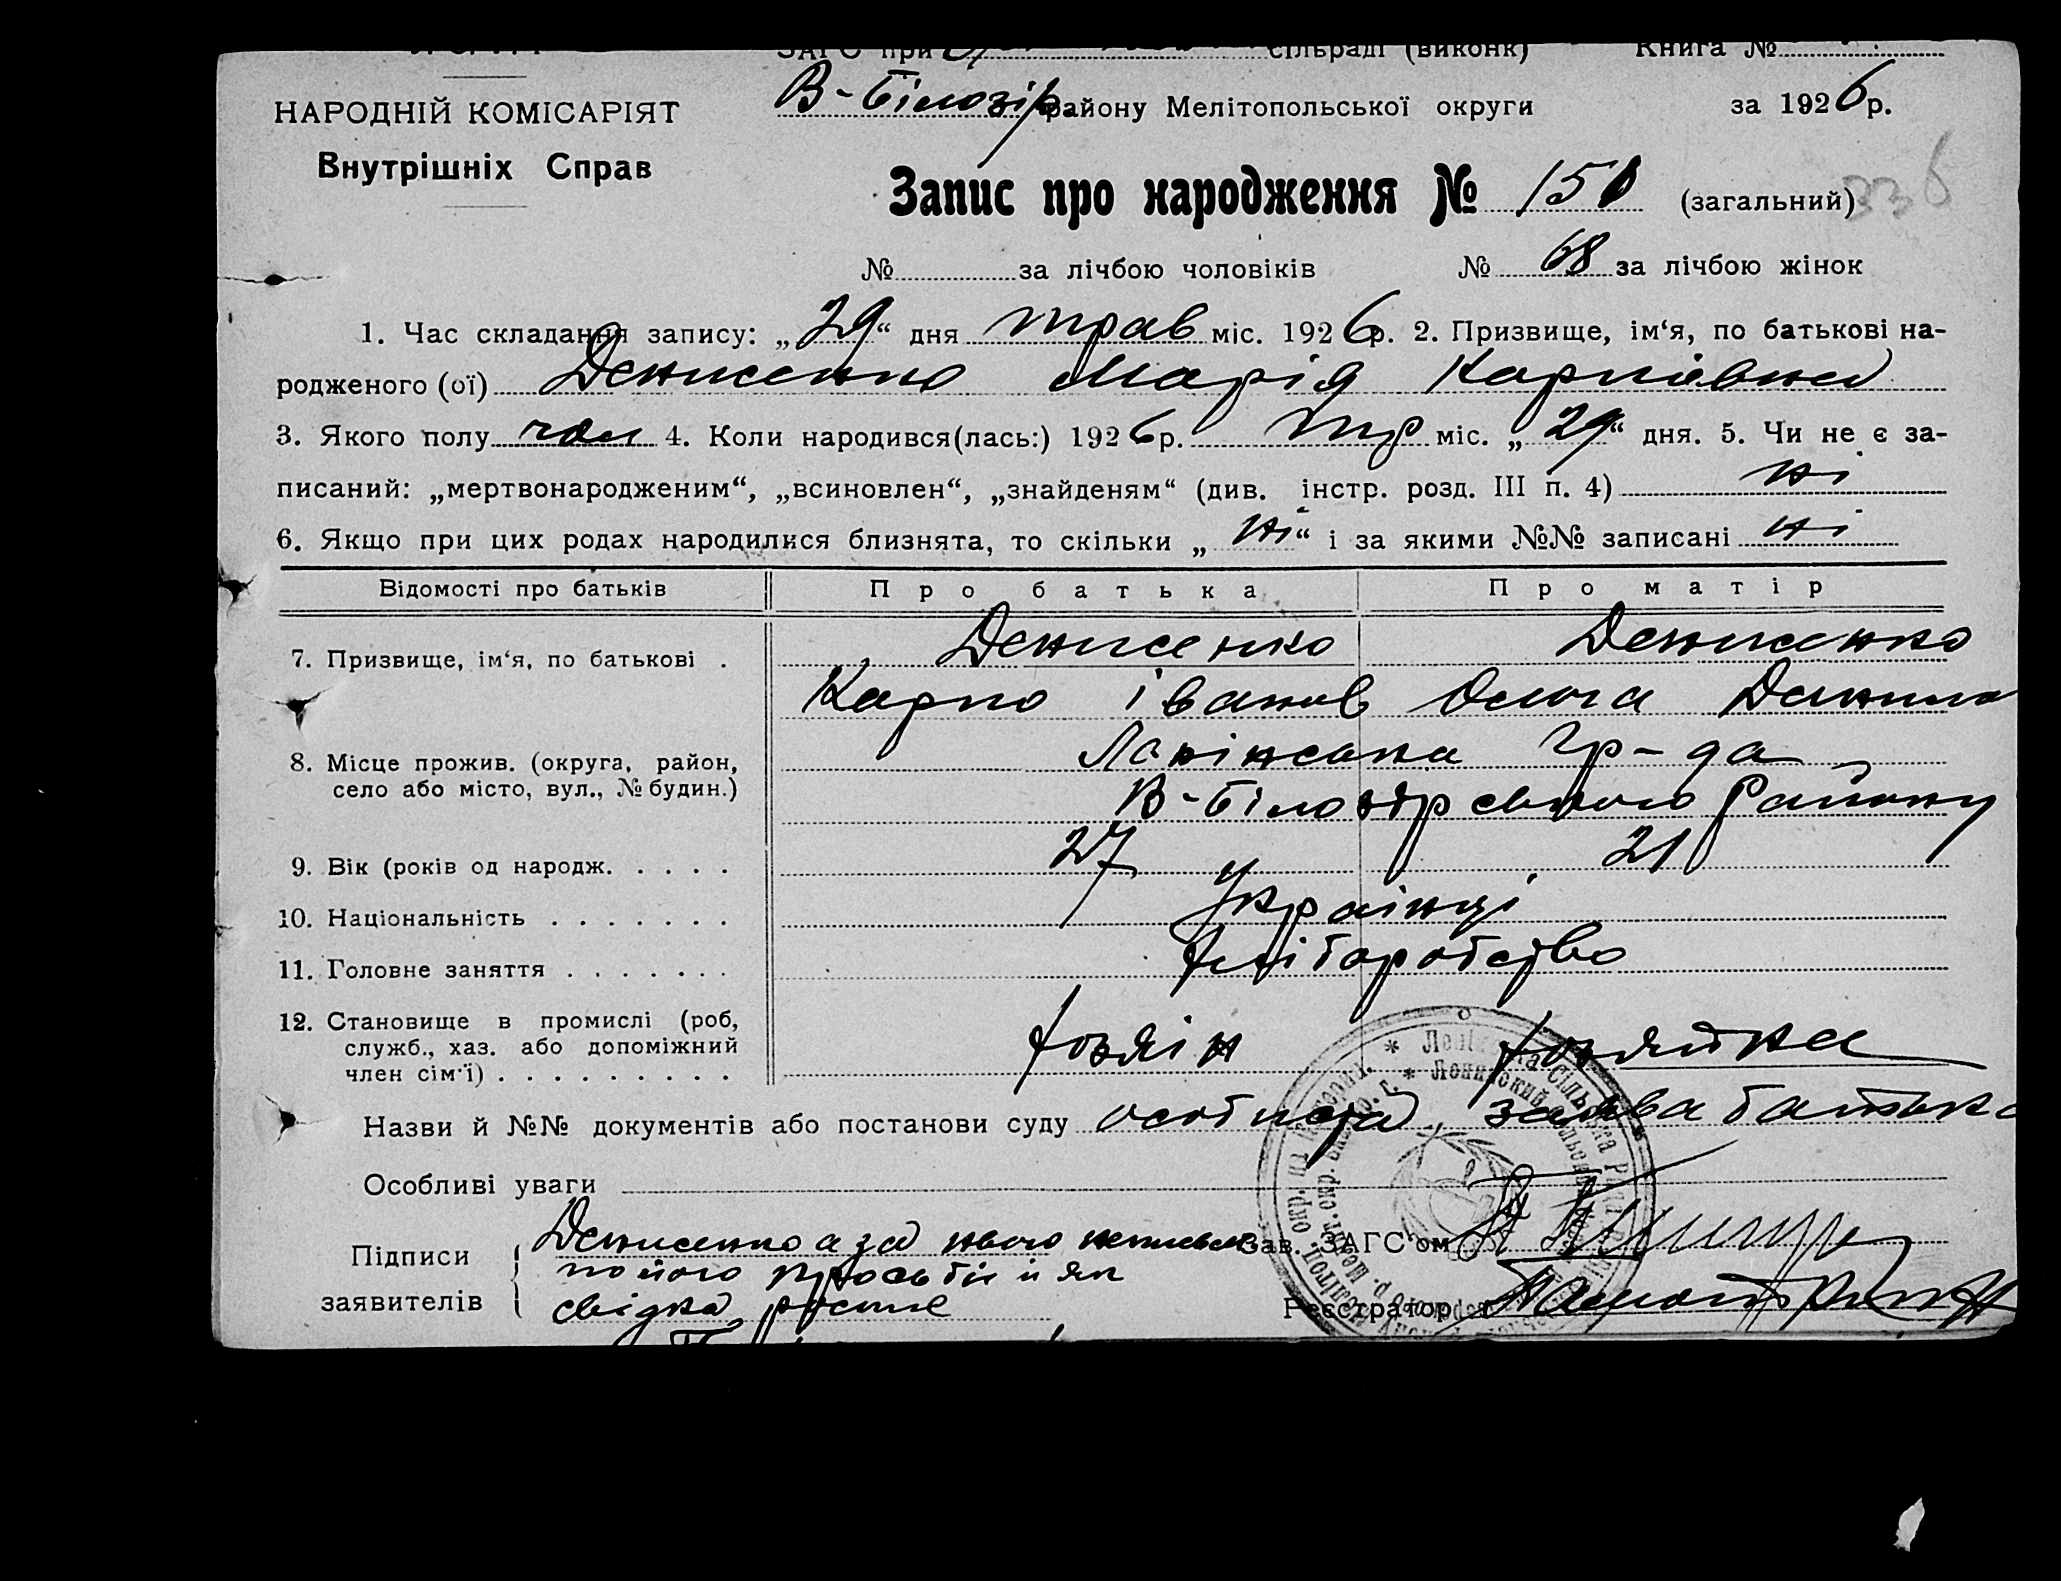 ЗАГС при сільраді (виконк) Книга №
НАРОДНІЙ КОМІСАРІЯТ
Внутрішніх Справ
В-Білозір району Мелітопольської округи за 1926 р.
Запис про народження № 150 (загальний) 336
№ за лічбою чоловіків № 68 за лічбою жінок
1. Час складання запису: „29“ дня трав міс. 1926 р. 2. Призвище, ім‘я, по батькові на-
родженого (ої) Денисенко Марія Карпівна
3. Якого полу чол 4. Коли народився(лась:) 1926 р. тр міс. „29“ дня. 5. Чи не є за-
писаний: „мертвонародженим“, „всиновлен“, „знайденям“ (див. інстр. розд. III п. 4) ні
6. Якщо при цих родах народилися близнята, то скільки „ні“ і за якими №№ записані ні
Відомості про батьків Про батька Про матір
7. Призвище, ім‘я, по батькові . Денисенко Денисенко
Карпо Іванов Ольга Данило
8. Місце прожив. (округа, район, Ленінська гр-да
село або місто, вул., № будин.) В-Білозірського району
9. Вік (років од народж. . . . . 27 21
10. Національність . . . . . . . Українці
11. Головне заняття . . . . . . . хліборобство
12. Становище в промислі (роб, хозяїн хозяйка
служб., хаз. або допоміжний
член сім‘ї) . . . . . . . . .
Назви й №№ документів або постанови суду особиста заява батька
Особливі уваги
Підписи Денисенко а за нього неписьмен Зав. ЗАГС‘ом
по його просьби й як
заявителів свідка росписв Реєстратор